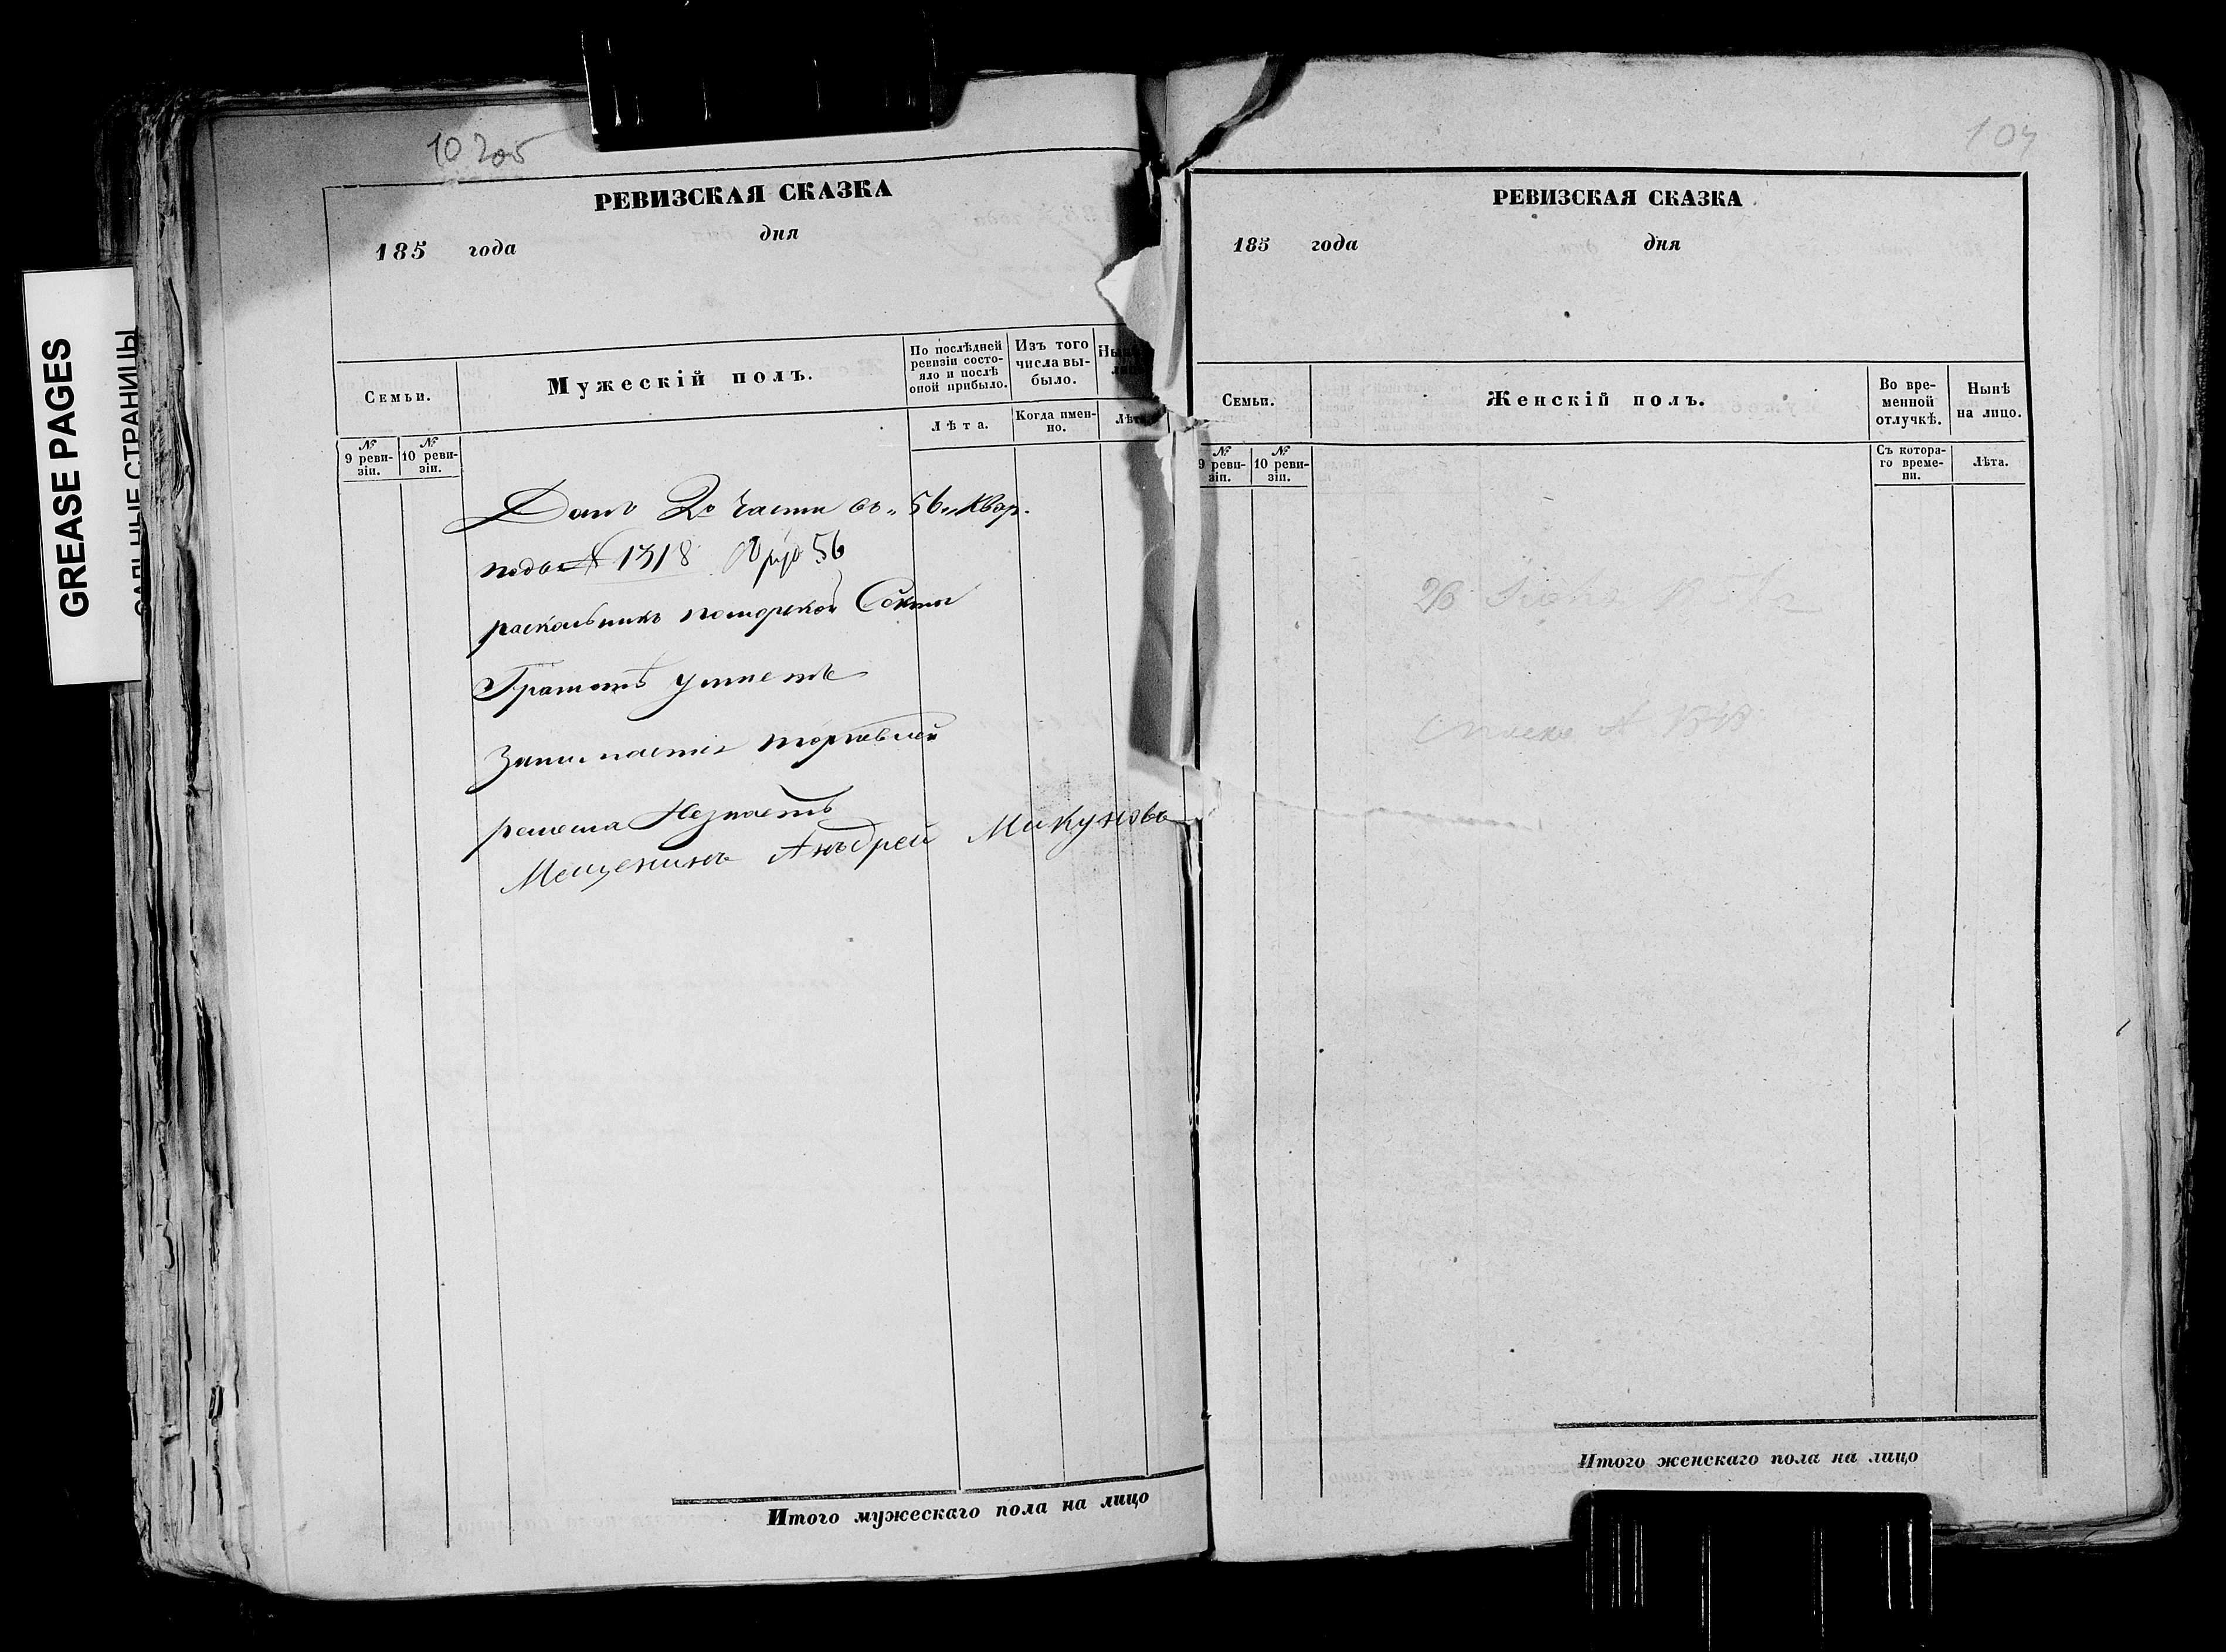 GREASE PAGES
САЛЬНЫЕ СТРАНИЦЫ
10 205
РЕВИЗСКАЯ СКАЗКА
185 года дня
Семьи.
Мужескій полъ.
По послѣдней ревизіи состояло и послѣ оной прибыло.
Изъ того числа выбыло.
Лѣта.
Когда именно.
Лѣта
№ 9 ревизіи.
№ 10 ревизіи.
Домъ 2й части въ „56„ квар.
подъ № 1318 56
раскольникъ поморской Секты
Грамотѣ умѣетъ
Занимается торговлей
ремесла Незнаетъ
Мещенинъ Анъдрей Микуновъ
Итого мужескаго пола на лицо
104
РЕВИЗСКАЯ СКАЗКА
185 года дня
Семьи.
Женскій полъ.
Во временной отлучкѣ.
Нынѣ на лицо.
№ 9 ревизіи.
№ 10 ревизіи.
Съ котораго времени.
Лѣта.
Итого женскаго пола на лицо